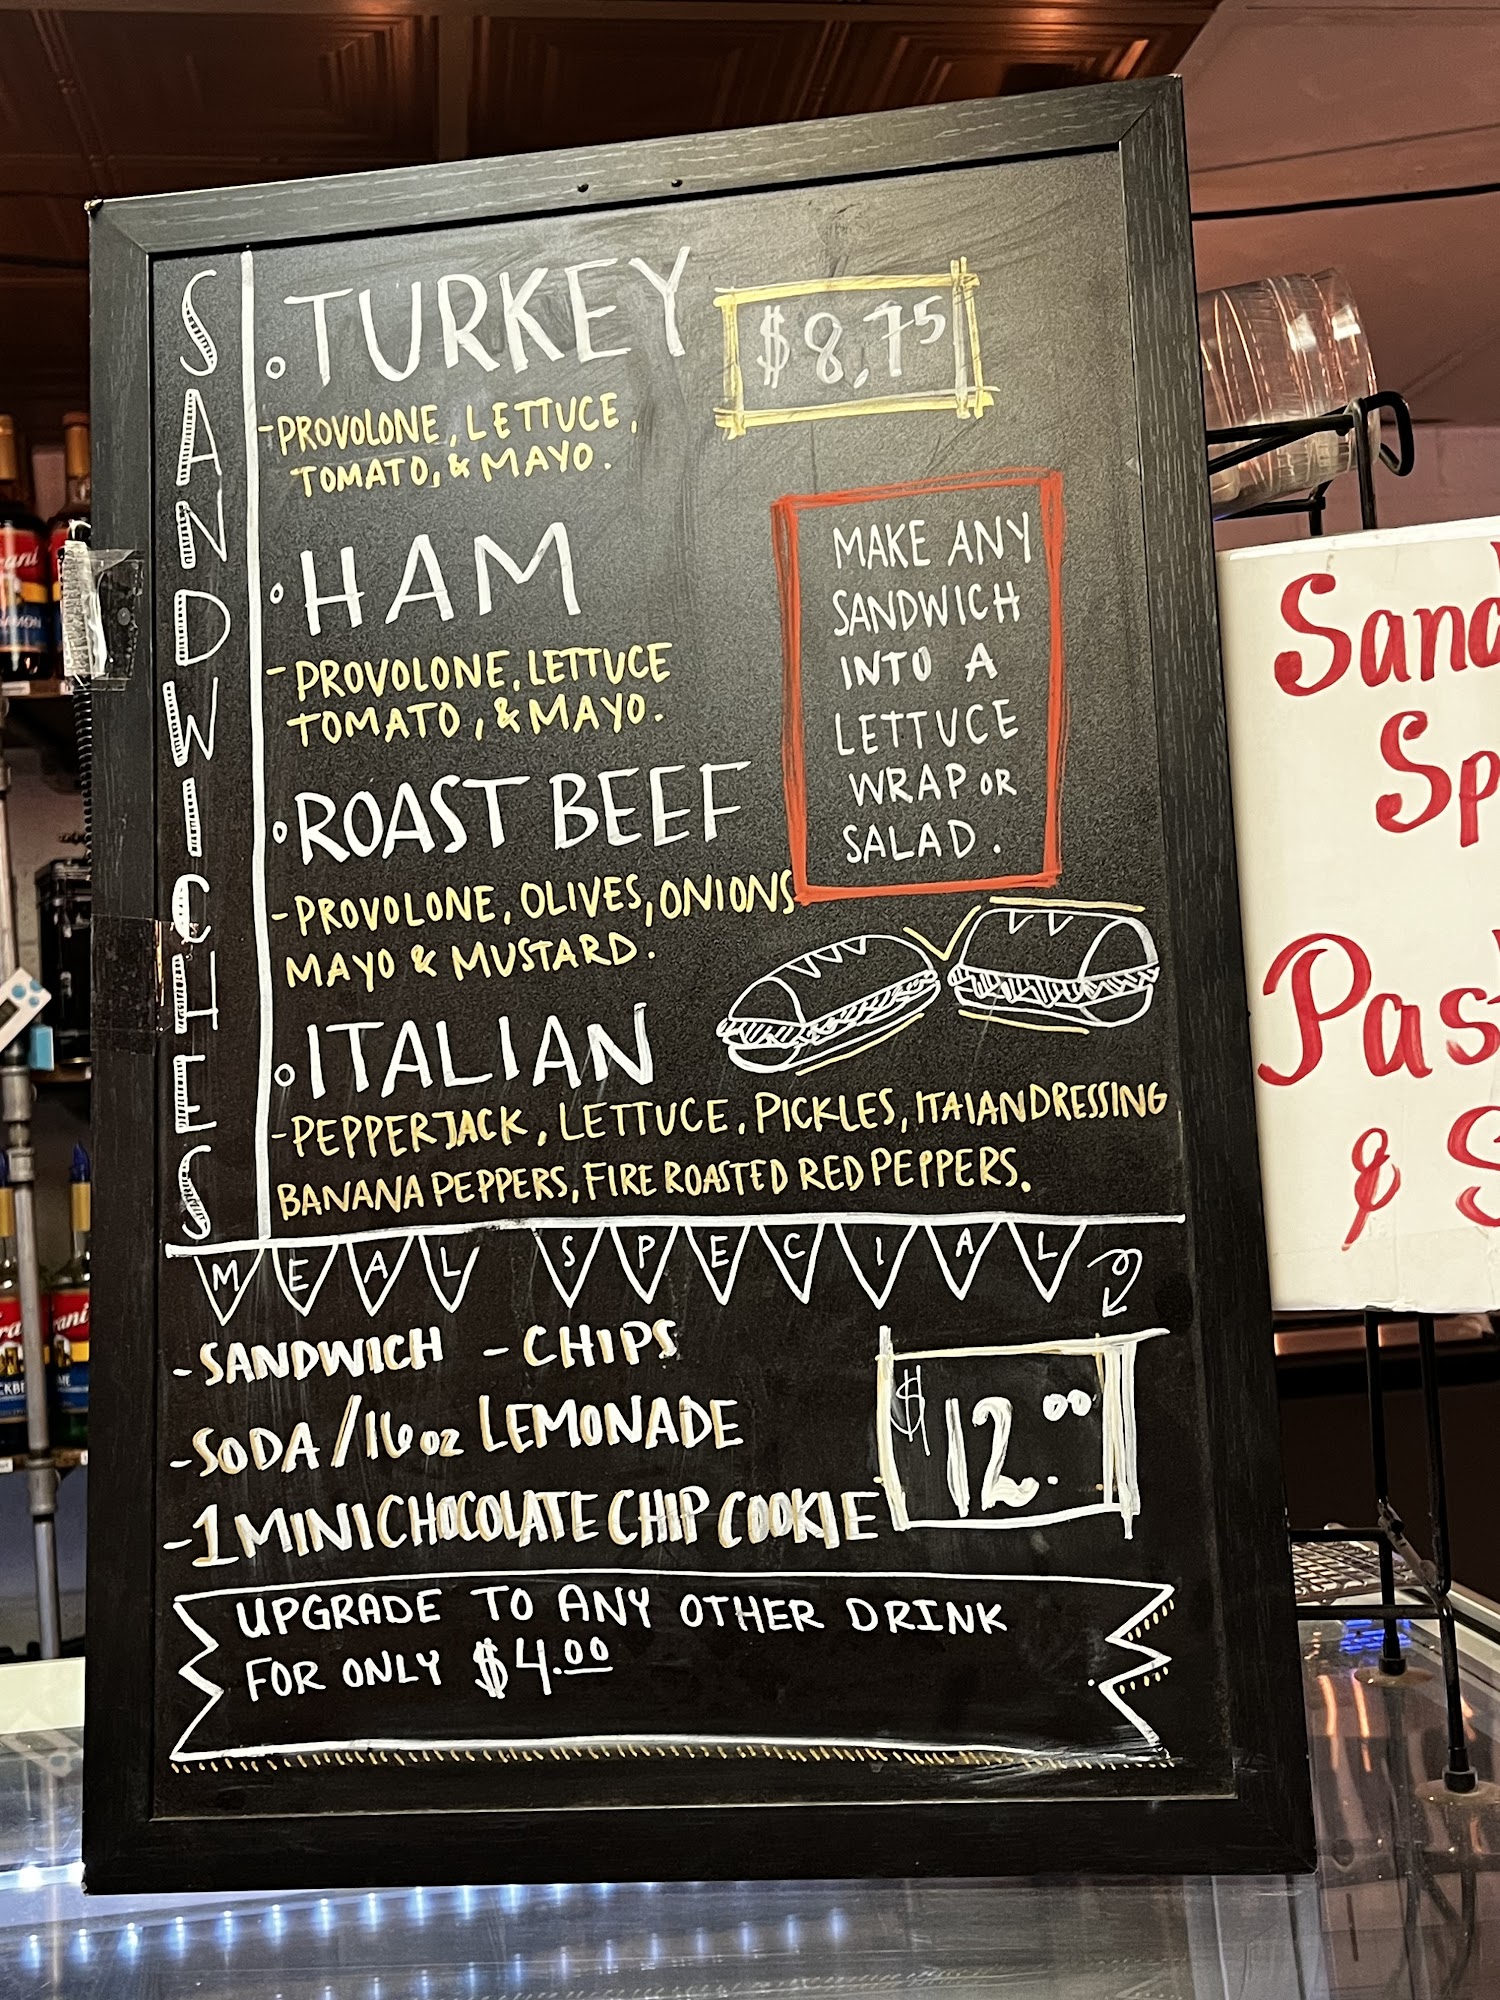 SANDWICHES
TURKEY
$8.75
-PROVOLONE, LETTUCE,
TOMATO, & MAYO.
HAM
-PROVOLONE, LETTUCE
TOMATO, & MAYO.
MAKE ANY
SANDWICH
INTO A
LETTUCE
WRAP OR
SALAD.
ROAST BEEF
-PROVOLONE, OLIVES, ONIONS
MAYO & MUSTARD.
ITALIAN
-PEPPERJACK, LETTUCE, PICKLES, ITAIAN DRESSING
BANANA PEPPERS, FIRE ROASTED RED PEPPERS.
MEAL SPECIAL
-SANDWICH -CHIPS
-SODA/16oz LEMONADE
-1 MINI CHOCOLATE CHIP COOKIE
$12.00
UPGRADE TO ANY OTHER DRINK
FOR ONLY $4.00
Sand
Sp
Pas
& S